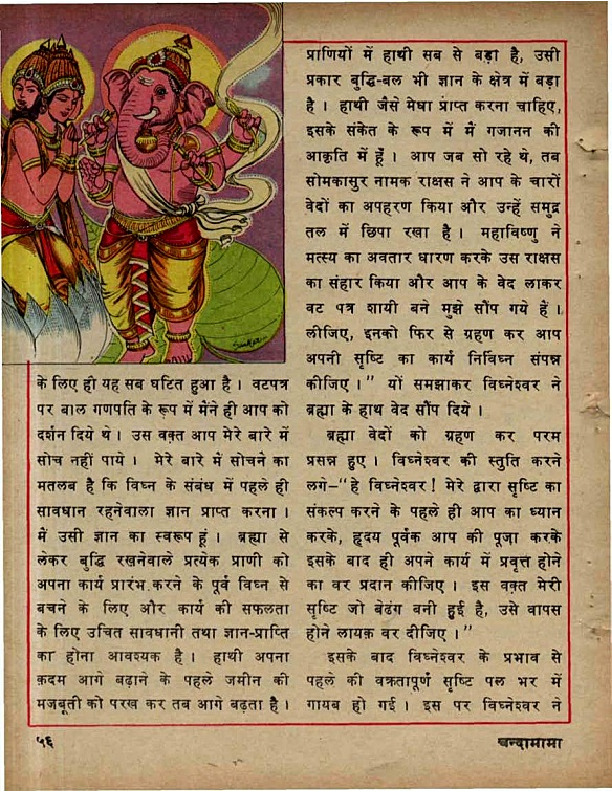 Sankar
के लिए ही यह सब घटित हुआ है । वटपत्र
पर बाल गणपति के रूप में मैंने ही आप को
दर्शन दिये थे । उस वक़्त आप मेरे बारे में
सोच नहीं पाये । मेरे बारे में सोचने का
मतलब है कि विघ्न के संबंध में पहले ही
सावधान रहनेवाला ज्ञान प्राप्त करना ।
मैं उसी ज्ञान का स्वरूप हूं । ब्रह्मा से
लेकर बुद्धि रखनेवाले प्रत्येक प्राणी को
अपना कार्य प्रारंभ करने के पूर्व विघ्न से
बचने के लिए और कार्य की सफलता
के लिए उचित सावधानी तथा ज्ञान-प्राप्ति
का होना आवश्यक है । हाथी अपना
क़दम आगे बढ़ाने के पहले जमीन की
मजबूती को परख कर तब आगे बढ़ता है ।
प्राणियों में हाथी सब से बड़ा है, उसी
प्रकार बुद्धि-बल भी ज्ञान के क्षेत्र में बड़ा
है । हाथी जैसे मेधा प्राप्त करना चाहिए,
इसके संकेत के रूप में मैं गजानन की
आकृति में हूँ । आप जब सो रहे थे, तब
सोमकासुर नामक राक्षस ने आप के चारों
वेदों का अपहरण किया और उन्हें समुद्र
तल में छिपा रखा है । महाविष्णु ने
मत्स्य का अवतार धारण करके उस राक्षस
का संहार किया और आप के वेद लाकर
वट पत्र शायी बने मुझे सौंप गये हैं ।
लीजिए, इनको फिर से ग्रहण कर आप
अपनी सृष्टि का कार्य निर्विघ्न संपन्न
कीजिए ।" यों समझाकर विघ्नेश्वर ने
ब्रह्मा के हाथ वेद सौंप दिये ।
ब्रह्मा वेदों को ग्रहण कर परम
प्रसन्न हुए । विघ्नेश्वर की स्तुति करने
लगे-"हे विघ्नेश्वर ! मेरे द्वारा सृष्टि का
संकल्प करने के पहले ही आप का ध्यान
करके, हृदय पूर्वक आप की पूजा करके
इसके बाद ही अपने कार्य में प्रवृत्त होने
का वर प्रदान कीजिए । इस वक़्त मेरी
सृष्टि जो बेढंग बनी हुई है, उसे वापस
होने लायक़ वर दीजिए ।"
इसके बाद विघ्नेश्वर के प्रभाव से
पहले की वक्रतापूर्ण सृष्टि पल भर में
गायब हो गई । इस पर विघ्नेश्वर ने
५६
चन्दामामा